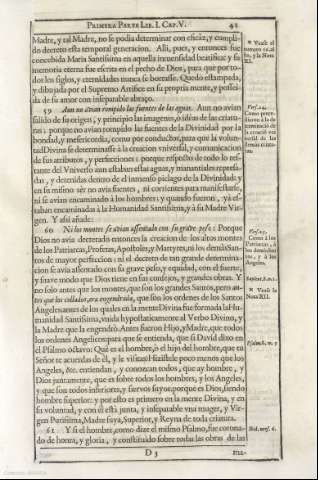 PRIMERA PARTE LIB. I. CAP. V. 41
Madre, y tal Madre, no se podia determinar con eficàz, y cumpli-
do decreto esta temporal generacion. Alli, pues, y entonces fue
concebida Maria Santissima en aquella inmensidad beatifica: y su
memoria eterna fue escrita en el pecho de Dios, para que por to-
dos los siglos, y eternidades nunca se borrasse. Quedò estampada,
y dibuxada por el Supremo Artifice en su propria mente, y posseì-
da de su amor con inseparable abraço.
59 Aun no avian rompido las fuentes de las aguas. Aun no avian
salido de su origen, y principio las imagenes, ò ideas de las criatu-
ras: porque no avian rompido las fuentes de la Divinidad por la
bondad, y misericordia, como por conductos, para que la volun-
tad Divina se determinasse à la creacion vniversal, y comunicacion
de sus atributos, y perfecciones: porque respecto de todo lo res-
tante del Vniverso aun estaban estas aguas, y manantiales represa-
das, y detenidas dentro de el inmenso pielago de la Divinidad; y
en su mismo sèr no avia fuentes, ni corrientes para manifestarse,
ni se avian encaminado à los hombres: y quando fueron, yà es-
taban encaminadas à la Humanidad Santissima, y à su Madre Vir-
gen. Y assi añade:
60 Ni los montes se avian assentado con su grave peso: Porque
Dios no avia decretado entonces la creacion de los altos montes
de los Patriarcas, Profetas, Apostoles, y Martyres, ni los demàs San-
tos de mayor perfeccion: ni el decreto de tan grande determina-
cion se avia assentado con su grave peso, y equidad, con el fuerte,
y suave modo que Dios tiene en sus consejos, y grandes obras. Y
no solo antes que los montes, que son los grandes Santos, pero an-
tes que los collados, era engendrada, que son los ordenes de los Santos
Angeles antes de los quales en la mente Divina fue formada la Hu-
manidad Santissima, vnida hypostaticamente al Verbo Divino, y
la Madre que la engendrò. Antes fueron Hijo, y Madre, que todos
los ordenes Angelicos: para que se entienda, que si David dixo en
el Psalmo octavo: Què es el hombre, ò el hijo del hombre, que tù
Señor te acuerdas de èl, y le visitas? Hizistele poco menos que los
Angeles, &c. entiendan, y conozcan todos, que ay hombre, y
Dios juntamente, que es sobre todos los hombres, y los Angeles,
y que son todos inferiores, y siervos suyos: porque es Dios, siendo
hombre superior: y por esto es primero en la mente Divina, y en
su voluntad, y con èl està junta, è inseparable vna muger, y Vir-
gen Purissima, Madre suya, Superior, y Reyna de toda criatura.
61 Y si el hombre, como dize el mismo Psalmo, fue corona-
do de honra, y gloria, y constituido sobre todas las obras de las
D 3
* Vease el
Nota
XI.
Como
* Vease la
Nota XII.
Psalm. 8. v. 5
Ibid. vers. 6.